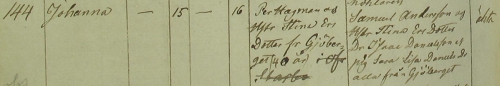 144 Johanna — 15 — 16 Per Hagman o h
Hstr Stina Ers
Dotter fr Gjöber-
get (40 år) i
Samuel Andersson o
Hstr Stina Ers Dotter
Dr Isaac Danielsson o
pig Sara Lisa Daniels Dr
alla från Gjöberget